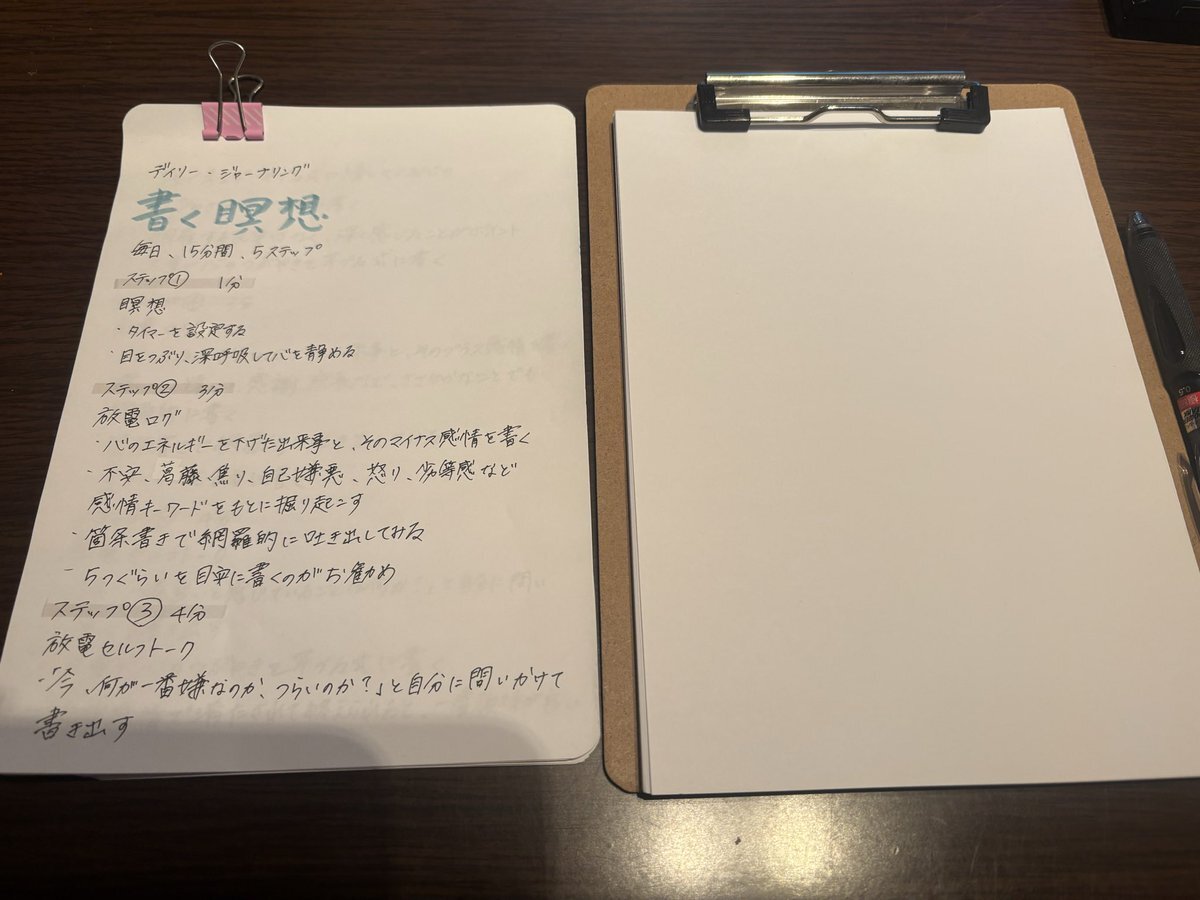 デイリー・ジャーナリング
書く瞑想
毎日、15分間、5ステップ
ステップ① 1分
瞑想
・タイマーを設定する
・目をつぶり、深呼吸して心を静める
ステップ② 3分
放電ログ
・心のエネルギーを下げた出来事と、そのマイナス感情を書く
・不安、葛藤、焦り、自己嫌悪、怒り、劣等感など
感情キーワードをもとに掘り起こす
・箇条書きで網羅的に吐き出してみる
- 5つぐらいを目安に書くのがお勧め
ステップ③ 4分
放電セルフトーク
・「今、何が一番嫌なのか、つらいのか?」と自分に問いかけて
書き出す
0.5